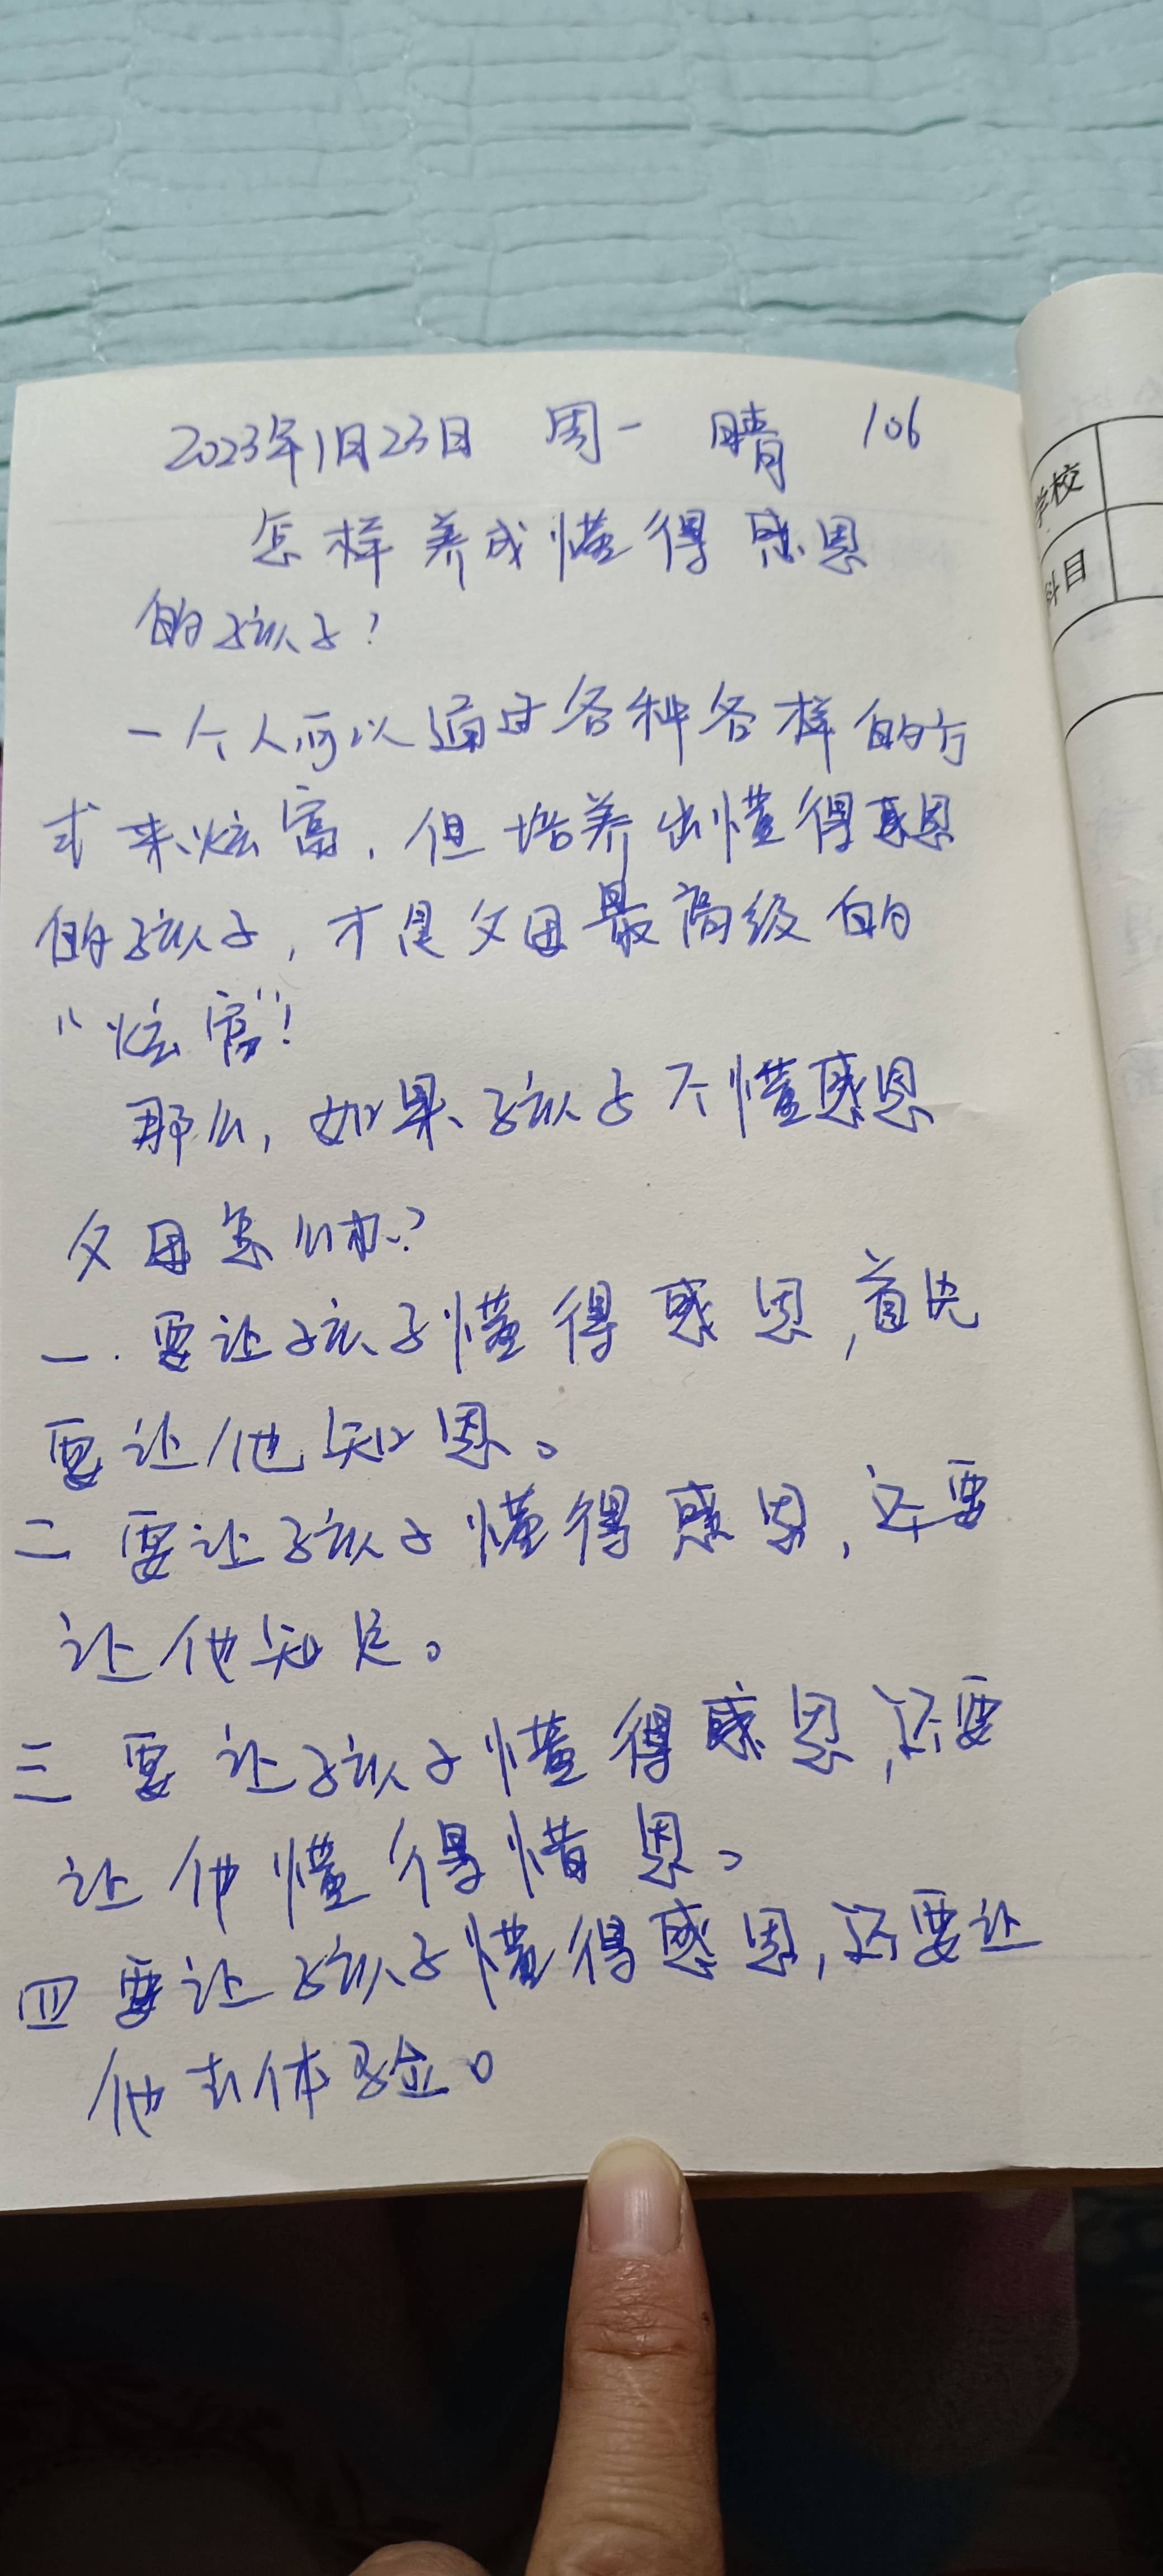 2023年1月23日 周一 晴 106
怎样养成懂得感恩
的孩子?
一个人可以通过各种各样的方
式来炫富,但培养出懂得感恩
的孩子,才是父母最高级的
“炫富”!
那么,如果孩子不懂感恩
父母怎么办?
一.要让孩子懂得感恩,首先
要让他知恩。
二 要让孩子懂得感恩,还要
让他知足。
三 要让孩子懂得感恩,还要
让他懂得惜恩。
四 要让孩子懂得感恩,还要让
他去体验。
学校
科目